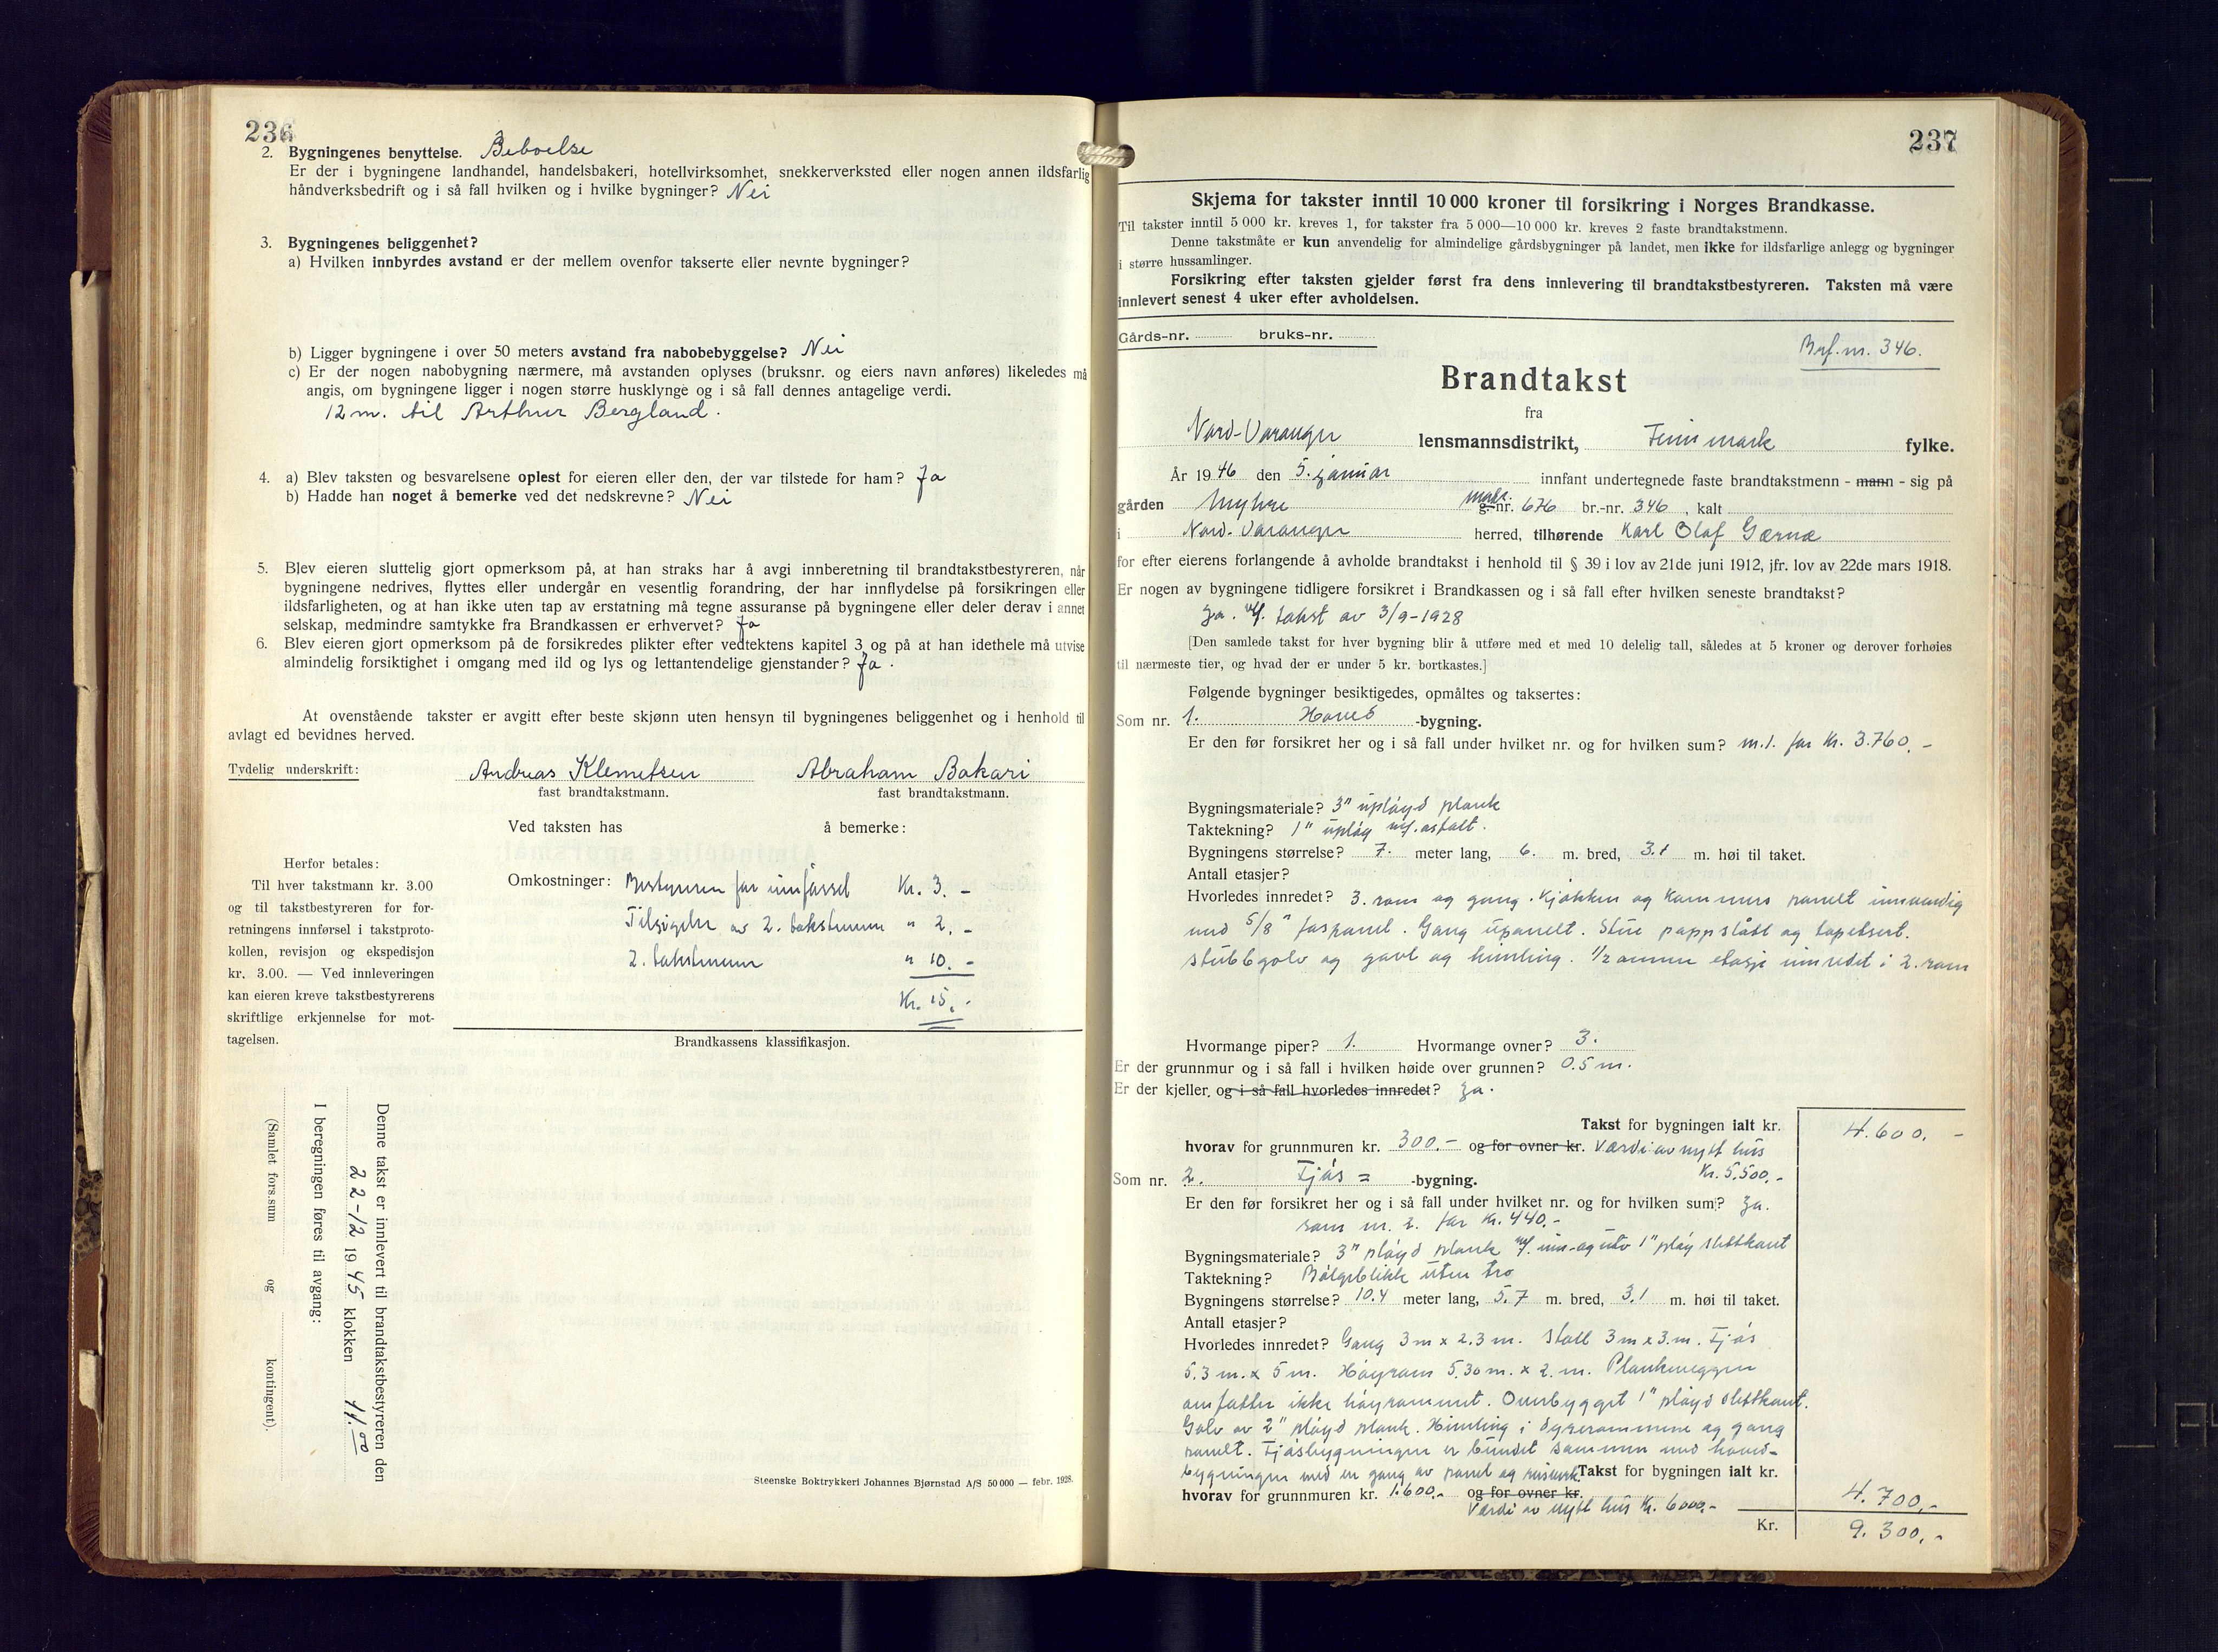 236
2. Bygningenes benyttelse. Beboelse
Er der i bygningene landhandel, handelsbakeri, hotellvirksomhet, snekkerverksted eller nogen annen ildsfarlig
håndverksbedrift og i så fall hvilken og i hvilke bygninger? Nei
3. Bygningenes beliggenhet?
a) Hvilken innbyrdes avstand er der mellem ovenfor takserte eller nevnte bygninger?
b) Ligger bygningene i over 50 meters avstand fra nabobebyggelse? Nei
c) Er der nogen nabobygning nærmere, må avstanden oplyses (bruksnr. og eiers navn anføres) likeledes må
angis, om bygningene ligger i nogen større husklynge og i så fall dennes antagelige verdi.
12 m. til Arthur Bergland.
4. a) Blev taksten og besvarelsene oplest for eieren eller den, der var tilstede for ham? Ja
b) Hadde han noget å bemerke ved det nedskrevne? Nei
5. Blev eieren sluttelig gjort opmerksom på, at han straks har å avgi innberetning til brandtakstbestyreren, når
bygningene nedrives, flyttes eller undergår en vesentlig forandring, der har innflydelse på forsikringen eller
ildsfarligheten, og at han ikke uten tap av erstatning må tegne assuranse på bygningene eller deler derav i annet
selskap, medmindre samtykke fra Brandkassen er erhvervet? Ja
6. Blev eieren gjort opmerksom på de forsikredes plikter efter vedtektens kapitel 3 og på at han idethele må utvise
almindelig forsiktighet i omgang med ild og lys og lettantendelige gjenstander? Ja.
At ovenstående takster er avgitt efter beste skjønn uten hensyn til bygningenes beliggenhet og i henhold til
avlagt ed bevidnes herved.
Tydelig underskrift: Andreas Klemetsen Abraham Bakari
fast brandtakstmann. fast brandtakstmann.
Ved taksten has å bemerke:
Herfor betales:
Til hver takstmann kr. 3.00
og til takstbestyreren for for-
retningens innførsel i takstproto-
kollen, revisjon og ekspedisjon
kr. 3.00. — Ved innleveringen
kan eieren kreve takstbestyrerens
skriftlige erkjennelse for mot-
tagelsen.
Omkostninger: Bestyreren for innførsel Kr. 3.-
Tilsigelse av 2. takstmenn " 2.-
2. takstmenn " 10.-
Kr. 15.-
Brandkassens klassifikasjon.
Denne takst er innlevert til brandtakstbestyreren den
22-12 1945 klokken 11.00
I beregningen føres til avgang:
(Samlet fors.sum og kontingent).
Steenske Boktrykkeri Johannes Bjørnstad A/S 50 000 — febr. 1928.
237
Skjema for takster inntil 10 000 kroner til forsikring i Norges Brandkasse.
Til takster inntil 5 000 kr. kreves 1, for takster fra 5 000—10 000 kr. kreves 2 faste brandtakstmenn.
Denne takstmåte er kun anvendelig for almindelige gårdsbygninger på landet, men ikke for ildsfarlige anlegg og bygninger
i større hussamlinger.
Forsikring efter taksten gjelder først fra dens innlevering til brandtakstbestyreren. Taksten må være
innlevert senest 4 uker efter avholdelsen.
Gårds-nr. bruks-nr.
Brf.nr. 346.
Brandtakst
fra
Nord-Varanger lensmannsdistrikt, Finnmark fylke.
År 1946 den 5. januar innfant undertegnede faste brandtakstmenn - mann - sig på
gården Myhre matr. g.-nr. 676 br.-nr. 346, kalt
i Nord-Varanger herred, tilhørende Karl Olaf Gærnæ
for efter eierens forlangende å avholde brandtakst i henhold til § 39 i lov av 21de juni 1912, jfr. lov av 22de mars 1918.
Er nogen av bygningene tidligere forsikret i Brandkassen og i så fall efter hvilken seneste brandtakst?
Ja. v/f. takst av 3/9-1928
[Den samlede takst for hver bygning blir å utføre med et med 10 delelig tall, således at 5 kroner og derover forhøies
til nærmeste tier, og hvad der er under 5 kr. bortkastes.]
Følgende bygninger besiktigedes, opmåltes og taksertes:
Som nr. 1. Hoved -bygning.
Er den før forsikret her og i så fall under hvilket nr. og for hvilken sum? nr. 1. for Kr. 3.760,-
Bygningsmateriale? 3" upløyd plank
Taktekning? 1" upløy m/. asfalt.
Bygningens størrelse? 7. meter lang, 6. m. bred, 3.1 m. høi til taket.
Antall etasjer?
Hvorledes innredet? 3. rom og gang. Kjøkken og Kammers panelt innvendig
med 5/8" faspanel. Gang upanelt. Stue pappslått og tapetsert.
stubbgolv og gavl og himling. 1/2 annen etasje innredet i 2. rom
Hvormange piper? 1. Hvormange ovner? 3.
Er der grunnmur og i så fall i hvilken høide over grunnen? 0.5 m.
Er der kjeller, og i så fall hvorledes innredet? Ja.
Takst for bygningen ialt kr. 4.600.-
hvorav for grunnmuren kr. 300.- og for ovner kr. Værdi av nytt hus
Kr. 5.500,-
Som nr. 2. Fjøs = -bygning.
Er den før forsikret her og i så fall under hvilket nr. og for hvilken sum? Ja.
som nr. 2. for Kr. 440.-
Bygningsmateriale? 3" pløyd plank m/. inn- og utv 1" pløy slettkant
Taktekning? Bølgeblikk uten tro
Bygningens størrelse? 10.4 meter lang, 5.7 m. bred, 3.1 m. høi til taket.
Antall etasjer?
Hvorledes innredet? Gang 3 m x 2.3 m. Stall 3 m x 3. m. Fjøs
5.3 m. x 5 m. Høyrom 5.30 m. x 2. m. Plankeveggen
omfatter ikke høyrommet. Ovenbygget 1" pløyd slettkant.
Golv av 2" pløyd plank. Himling i dyrerommene og gang
panelt. Fjøsbygningen er bundet sammen med hoved-
bygningen med en gang av panel og Takst for bygningen ialt kr.
hvorav for grunnmuren kr. 1.600.- og for ovner kr. 4.700,-
Værdi av nytt hus Kr. 6000,-
Kr. 9.300,-